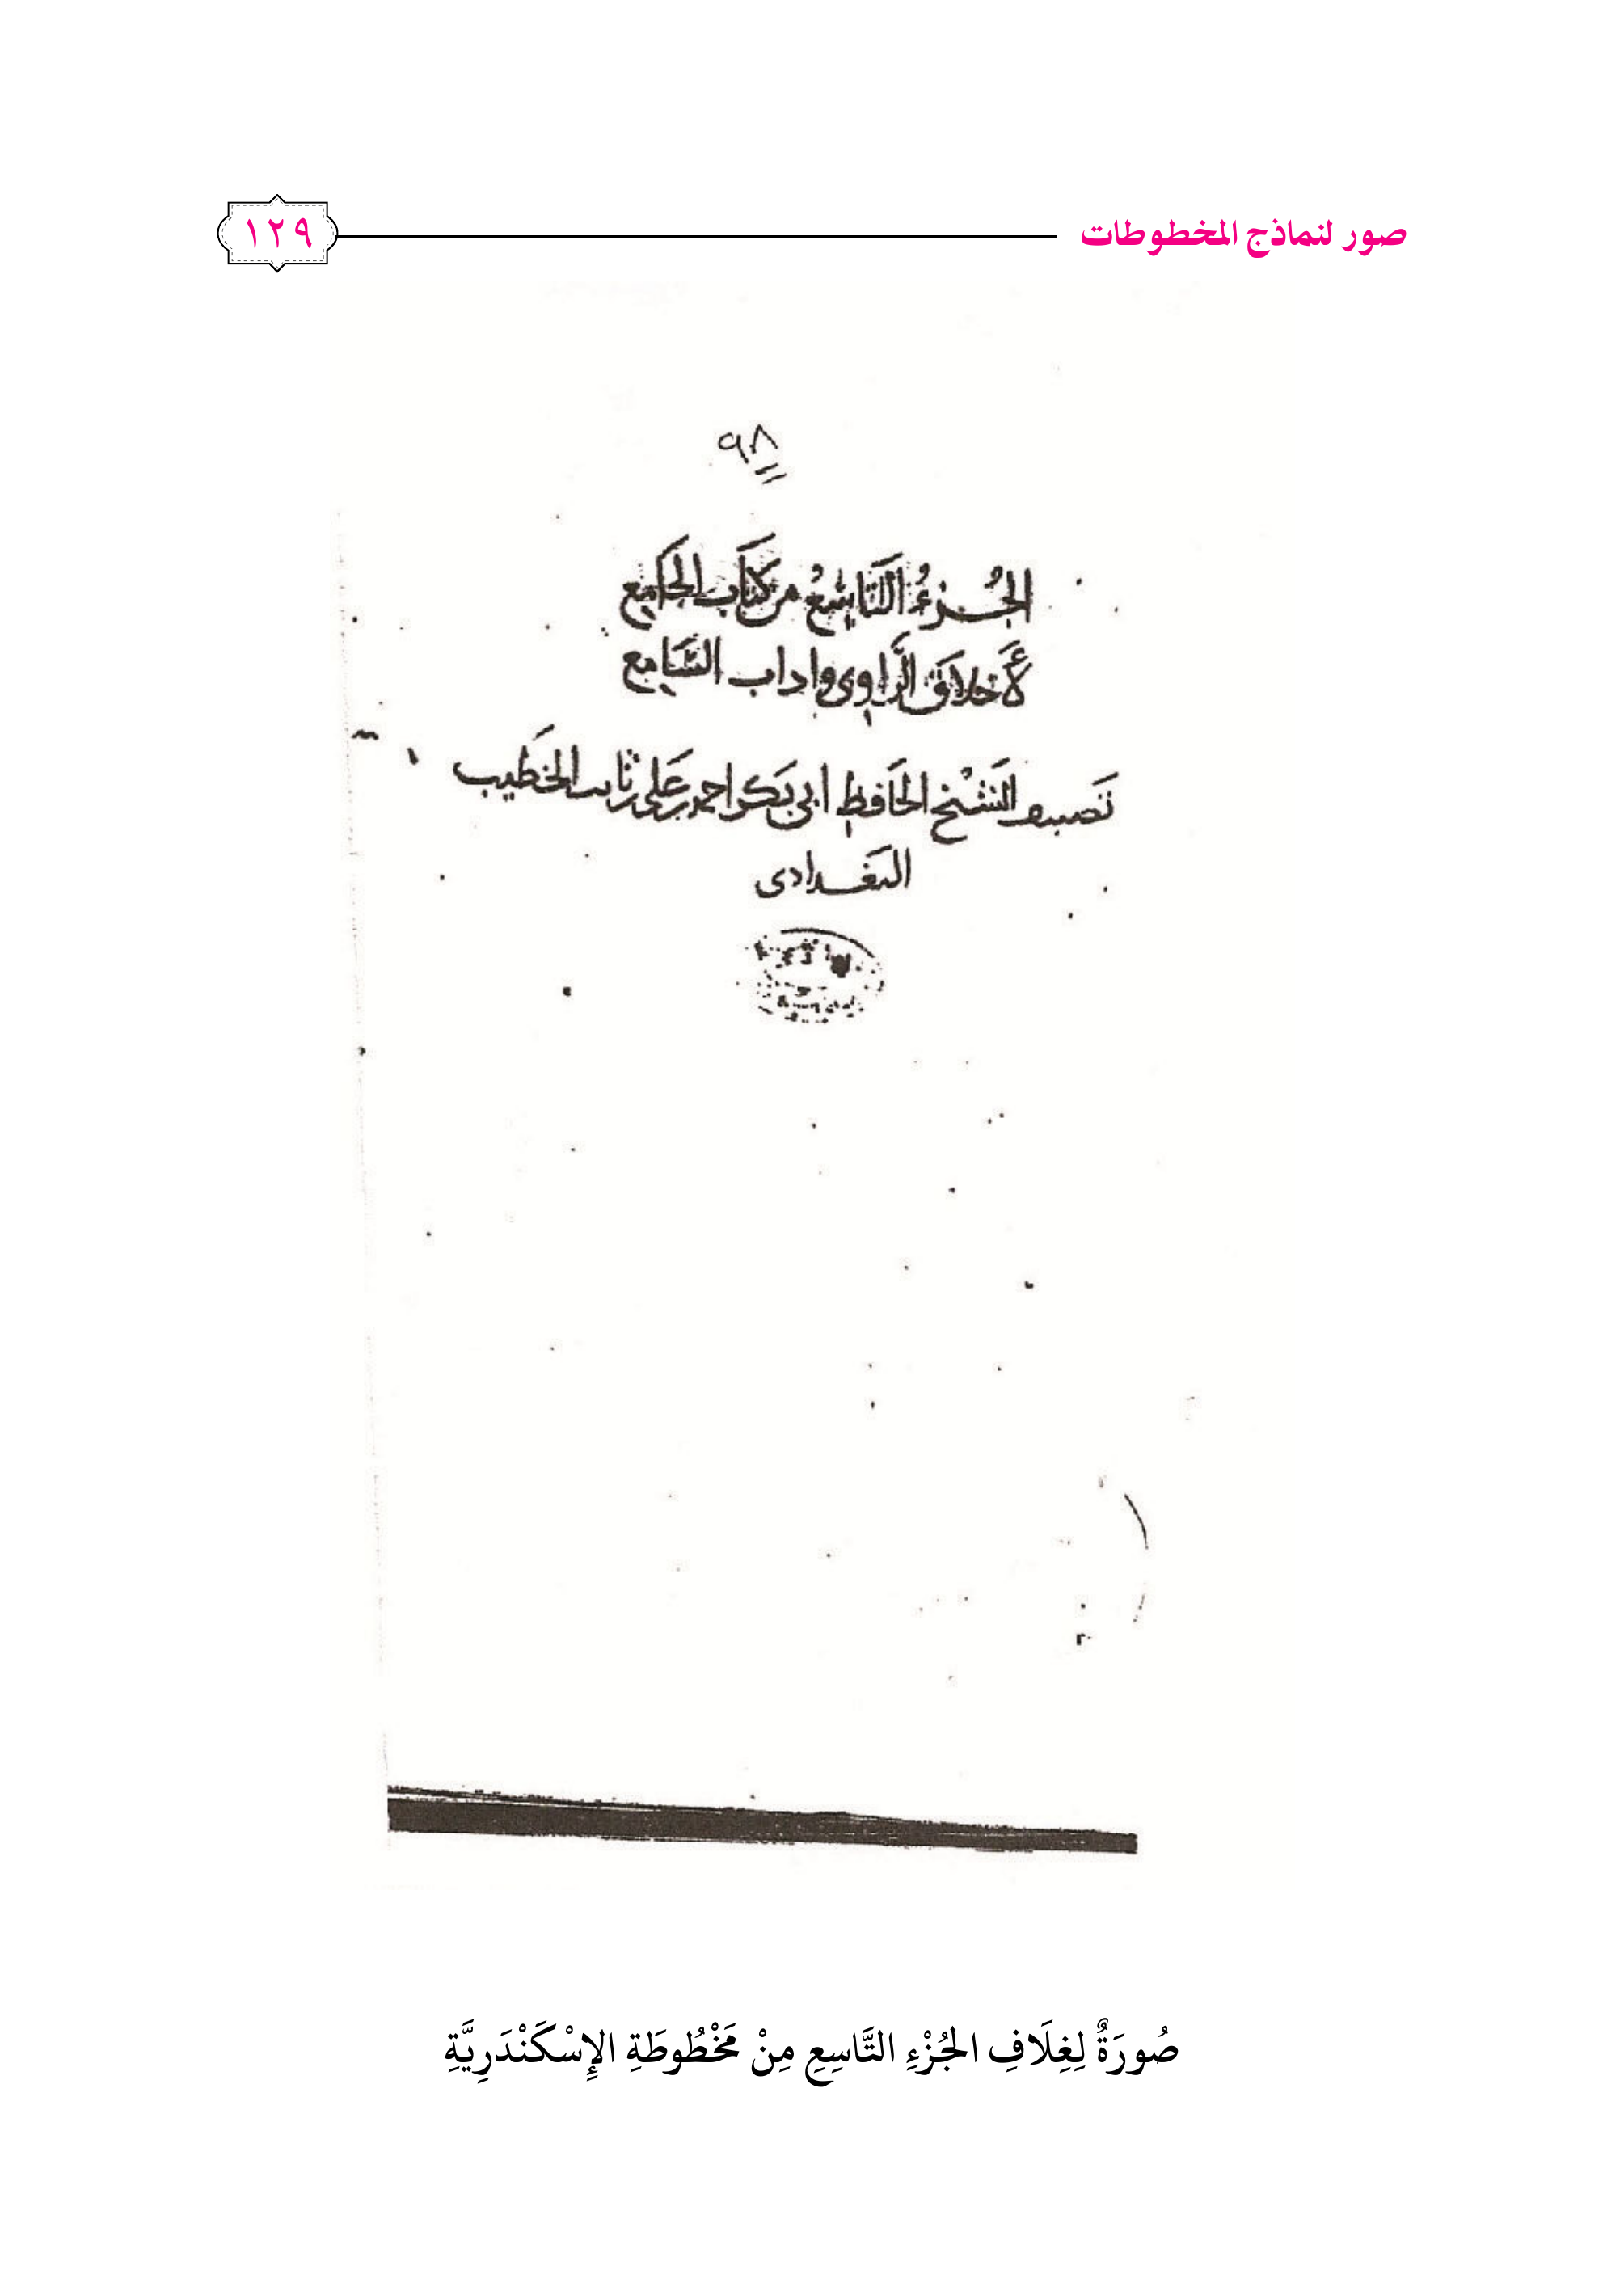 صور لنماذج المخطوطات
١٢٩
٩٨
الجُزءُ التَّاسِعُ من كتَاب الجَامِع
لأَخلاَق الرَّاوِى واداب السَّامِع
تَصنيف الشَّيْخ الحَافِظ ابى بَكر احمد بن عَلى بن ثابت الخَطيب
البَغدادى
صُورَةٌ لِغِلَافِ الجُزْءِ التَّاسِعِ مِنْ مَخْطُوطَةِ الإِسْكَنْدَرِيَّةِ